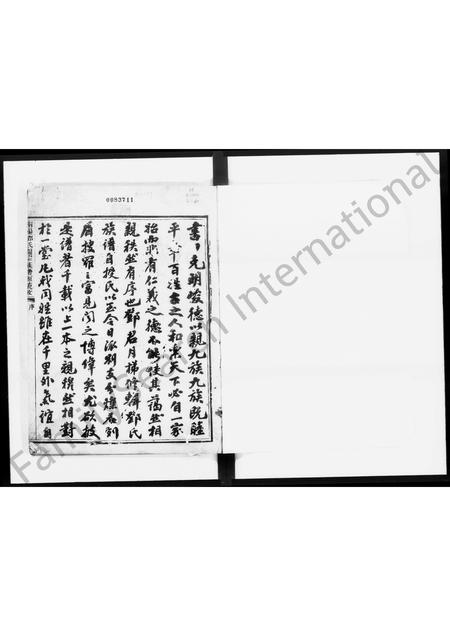 0083711
書曰克明峻德以親九族九族既睦
平章百姓古之人和索天下必自一家
始而非有仁義之德不能使其藹然相
親秩然有序也鄧君月梯修輯鄧氏
族譜自授氏以至今日派別支分燦若列
眉搜羅之富見聞之博偉矣尤欲披
是譜者千載以上一本之親穆然相對
於一堂凡我同姓雖在千里外氣誼自
FamilySearch International